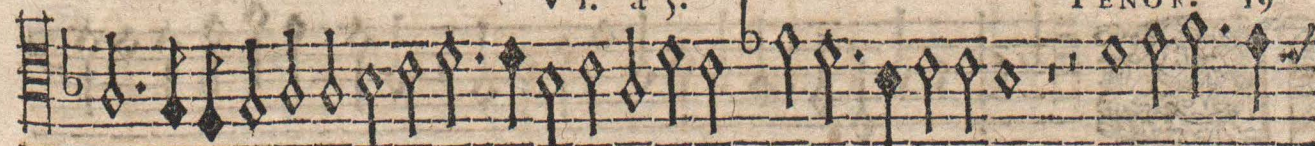 VI. à 5. TENOR. 19